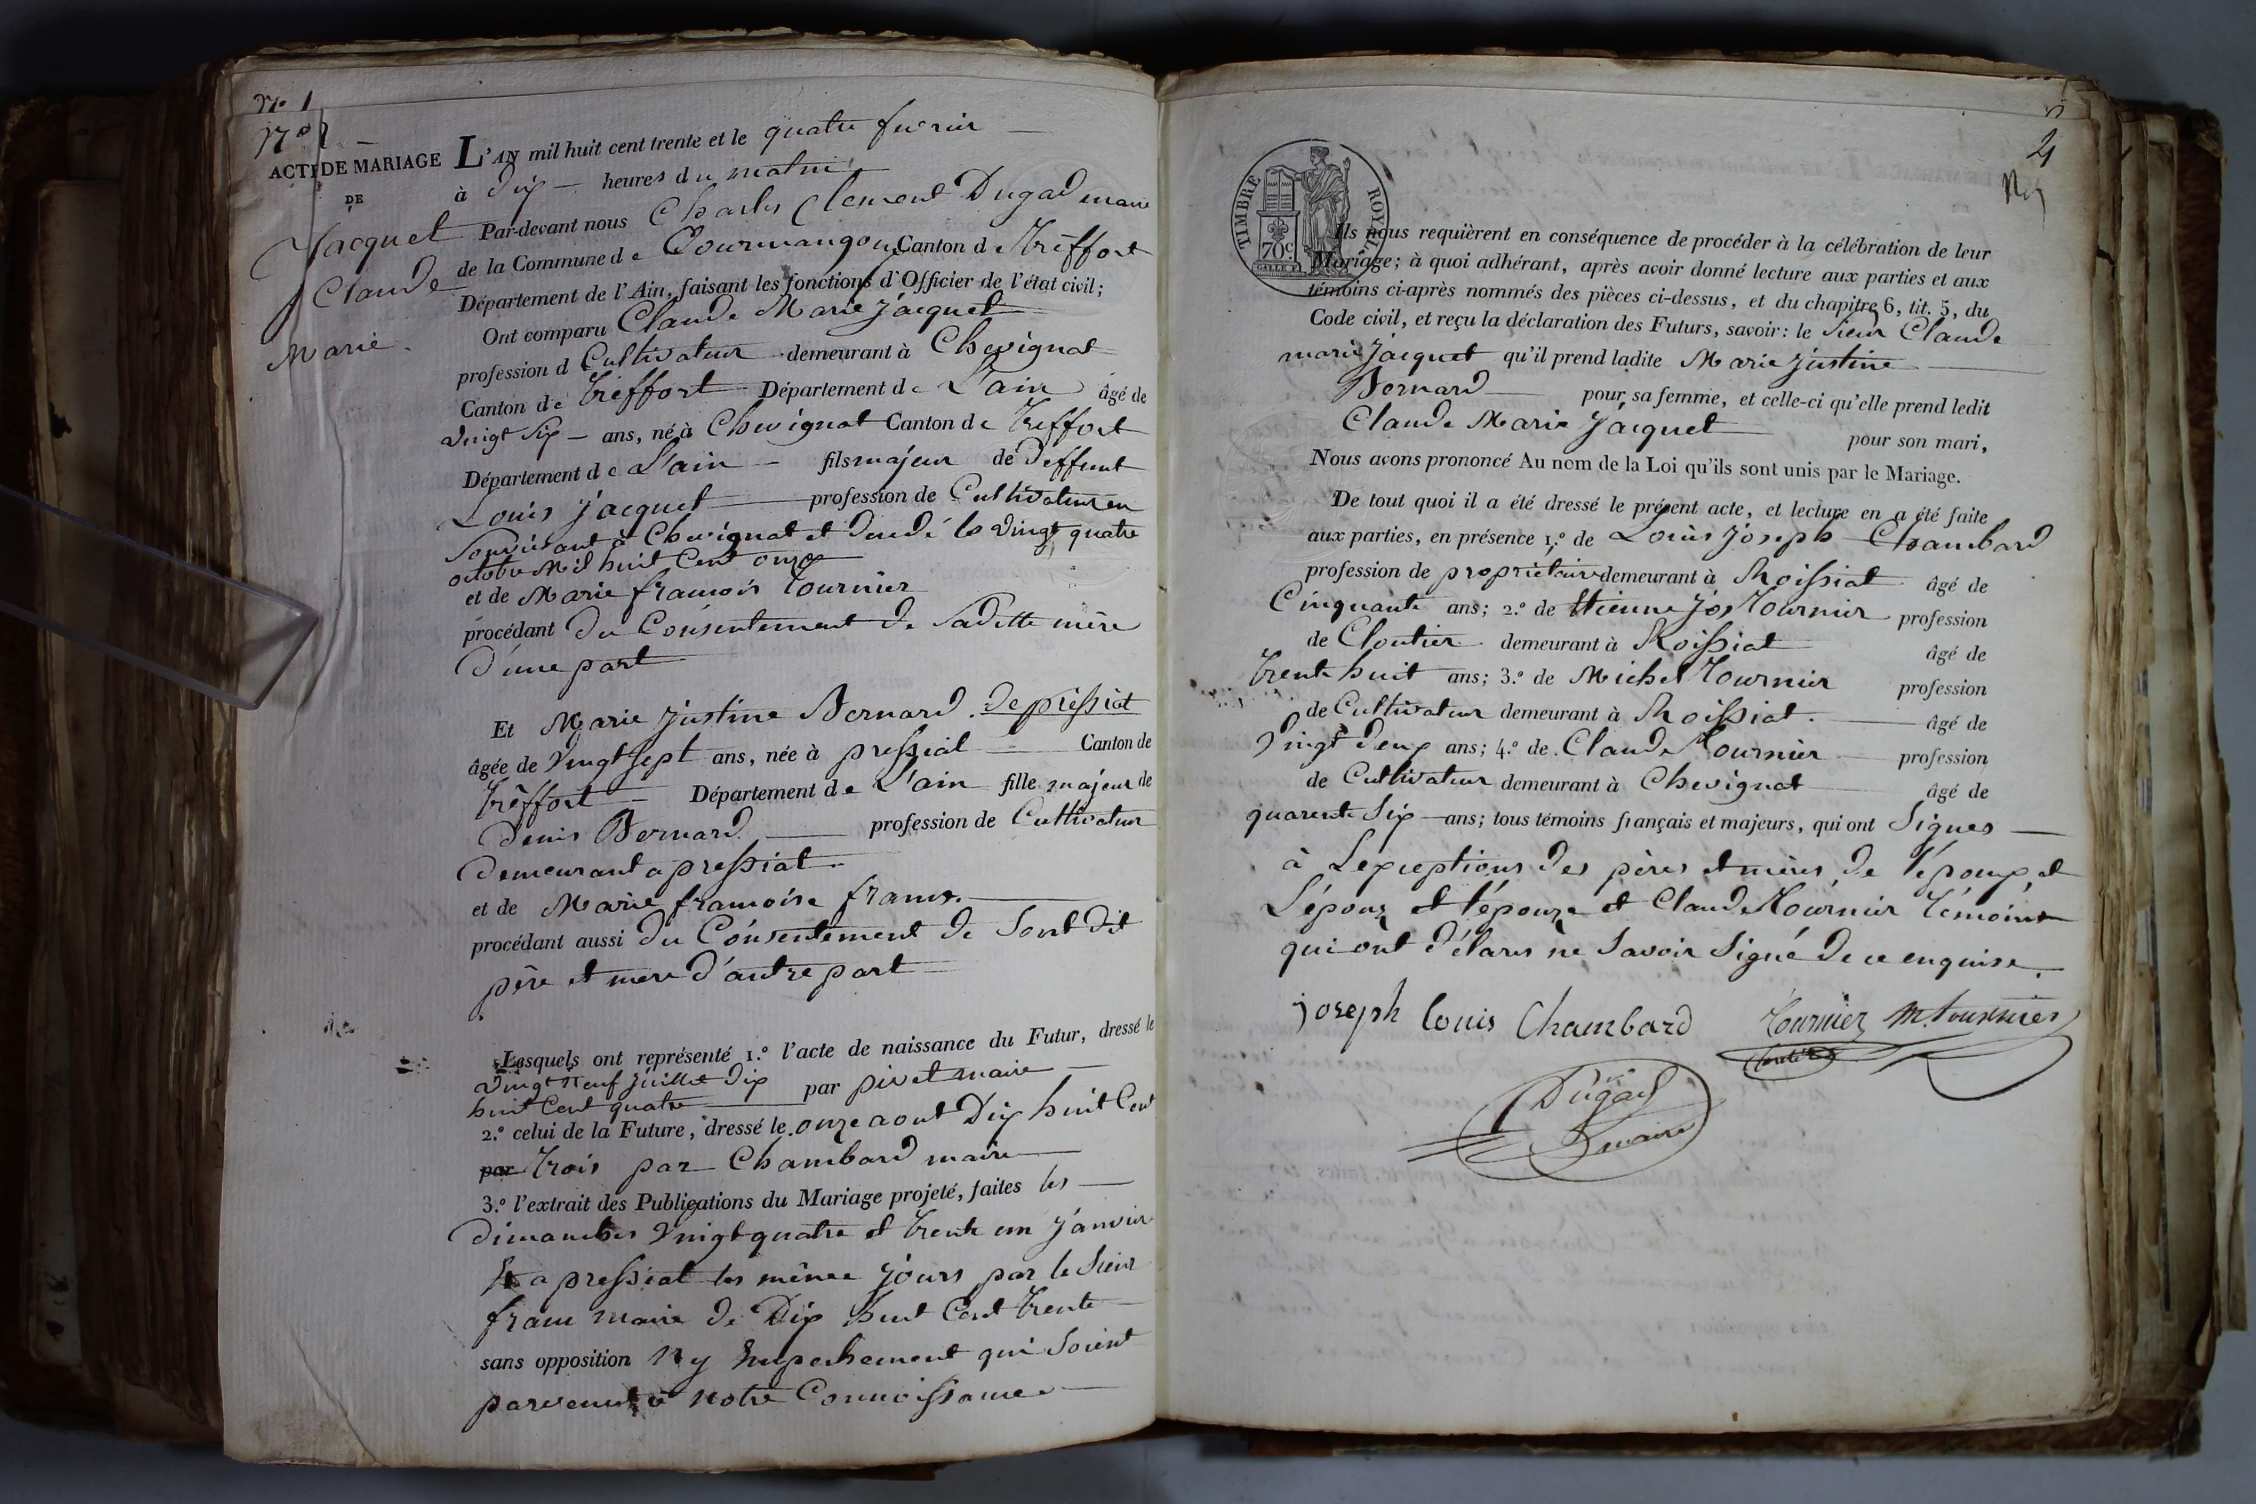 N.° 1
N° 1
ACTE DE MARIAGE
DE
Jacquet
Claude
Marie
L'AN mil huit cent trente et le quatre fevrier
à dix heures du matin
Par-devant nous Charles Clement Dugad maire
de la Commune de Courmangou Canton de Trêffort
Département de l'Ain, faisant les fonctions d'Officier de l'état civil;
Ont comparu Claude Marie Jacquet
profession d Cultivateur demeurant à Chevignat
Canton de Trêffort Département de L'ain âgé de
vingt six ans, né à Chevignat Canton de Treffort
Département de L'ain fils majeur de deffunt
Louis Jacquet profession de Cultivateur en
Sonvivant à Chevignat et décédé le vingt quatre
octobre Mil huit Cent onze
et de Marie françois Tournier
procédant du Consentement de Sadette mère
d'une part
Et Marie Justine Bernard de pressiat
âgée de vingt sept ans, née à pressiat Canton de
Trêffort Département de L'ain fille majeur de
denis Bernard profession de Cultivateur
demeurant a pressiat
et de Marie francoise franc
procédant aussi du Consentement de Sont dit
père et mere d'autre part
Lesquels ont représenté 1.° l'acte de naissance du Futur, dressé le
vingt neuf juillet dix par pivet maire
huit Cent quatre
2.° celui de la Future, dressé le onze aout Dix huit Cent
par trois par Chambard maire
3.° l'extrait des Publications du Mariage projeté, faites les
dimanches vingt quatre et trente un janvier
Et a pressiat les même jours par le Sieur
franc maire de Dix huit Cent trente
sans opposition Ny Empechement qui Soient
parvenut à notre Connoissance
2
TIMBRE ROYAL
70c.
Ils nous requièrent en conséquence de procéder à la célébration de leur
Mariage; à quoi adhérant, après avoir donné lecture aux parties et aux
témoins ci-après nommés des pièces ci-dessus, et du chapitre 6, tit. 5, du
Code civil, et reçu la déclaration des Futurs, savoir: le Sieur Claude
marie Jacquet qu'il prend ladite Marie Justine
Bernard pour sa femme, et celle-ci qu'elle prend ledit
Claude Marie Jacquet pour son mari,
Nous avons prononcé Au nom de la Loi qu'ils sont unis par le Mariage.
De tout quoi il a été dressé le présent acte, et lecture en a été faite
aux parties, en présence 1.° de Louis Joseph Chambard
profession de propriétaire demeurant à Roissiat âgé de
Cinquante ans; 2.° de Etienne Jos Tournier profession
de Cloutier demeurant à Roissiat âgé de
trente huit ans; 3.° de Michel Tournier profession
de Cultivateur demeurant à Roissiat. âgé de
vingt deux ans; 4.° de Claude Tournier profession
de Cultivateur demeurant à Chevignat âgé de
quarente Six ans; tous témoins français et majeurs, qui ont Signes
à Lexceptions des pères et mères de l'epoux et
L'épouz et l'épouze et Claude Tournier témoins
qui ont délares ne Savoir Signé de ce enquise
joseph louis Chambard Tournier M. tournier
Dugad
maire